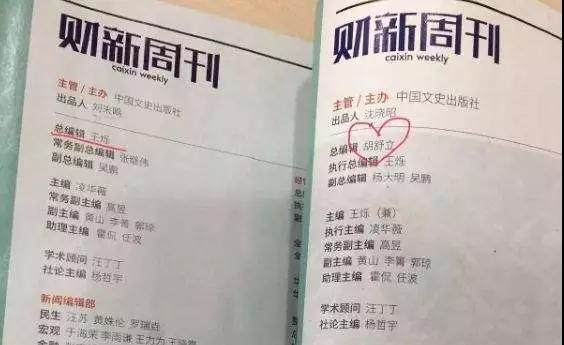 财新周刊
caixin weekly
主管 / 主办 中国文史出版社
出品人 刘未鸣
总编辑 王烁
常务副总编辑 张继伟
副总编辑 吴鹏
主编 凌华薇
常务副主编 高昱
副主编 黄山 李箐 郭琼
助理主编 霍侃 任波
学术顾问 汪丁丁
社论主编 杨哲宇
新闻编辑部
民生 汪苏 黄姝伦 罗瑞垚
宏观 于海荣 李雨谦 王力为
财新周刊
caixin weekly
主管 / 主办 中国文史出版社
出品人 沈晓昭
总编辑 胡舒立
执行总编辑 王烁
副总编辑 杨大明 吴鹏
主编 王烁（兼）
执行主编 凌华薇
常务副主编 高昱
副主编 黄山 李箐 郭琼
助理主编 霍侃 任波
学术顾问 汪丁丁
社论主编 杨哲宇